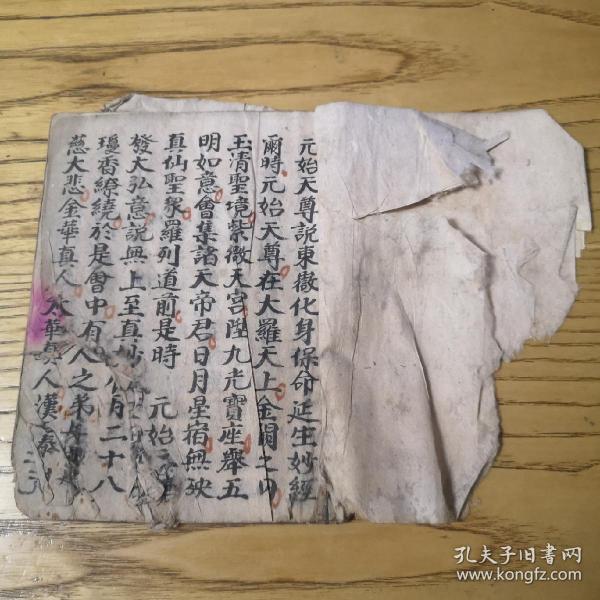 元始天尊説東嶽化身保命延生妙經
爾時元始天尊在大羅天上金闕之内
玉清聖境紫微天宫陞九光寶座舉五
明如意會集諸天帝君日月星宿無殃
真仙聖衆羅列道前是時 元始
發大弘意説無上至真妙
瓊香繚繞於是會中有人之弟
八百二十八
慈大悲金華真人 太華真人漢
孔夫子旧書网
www.kongfz.com